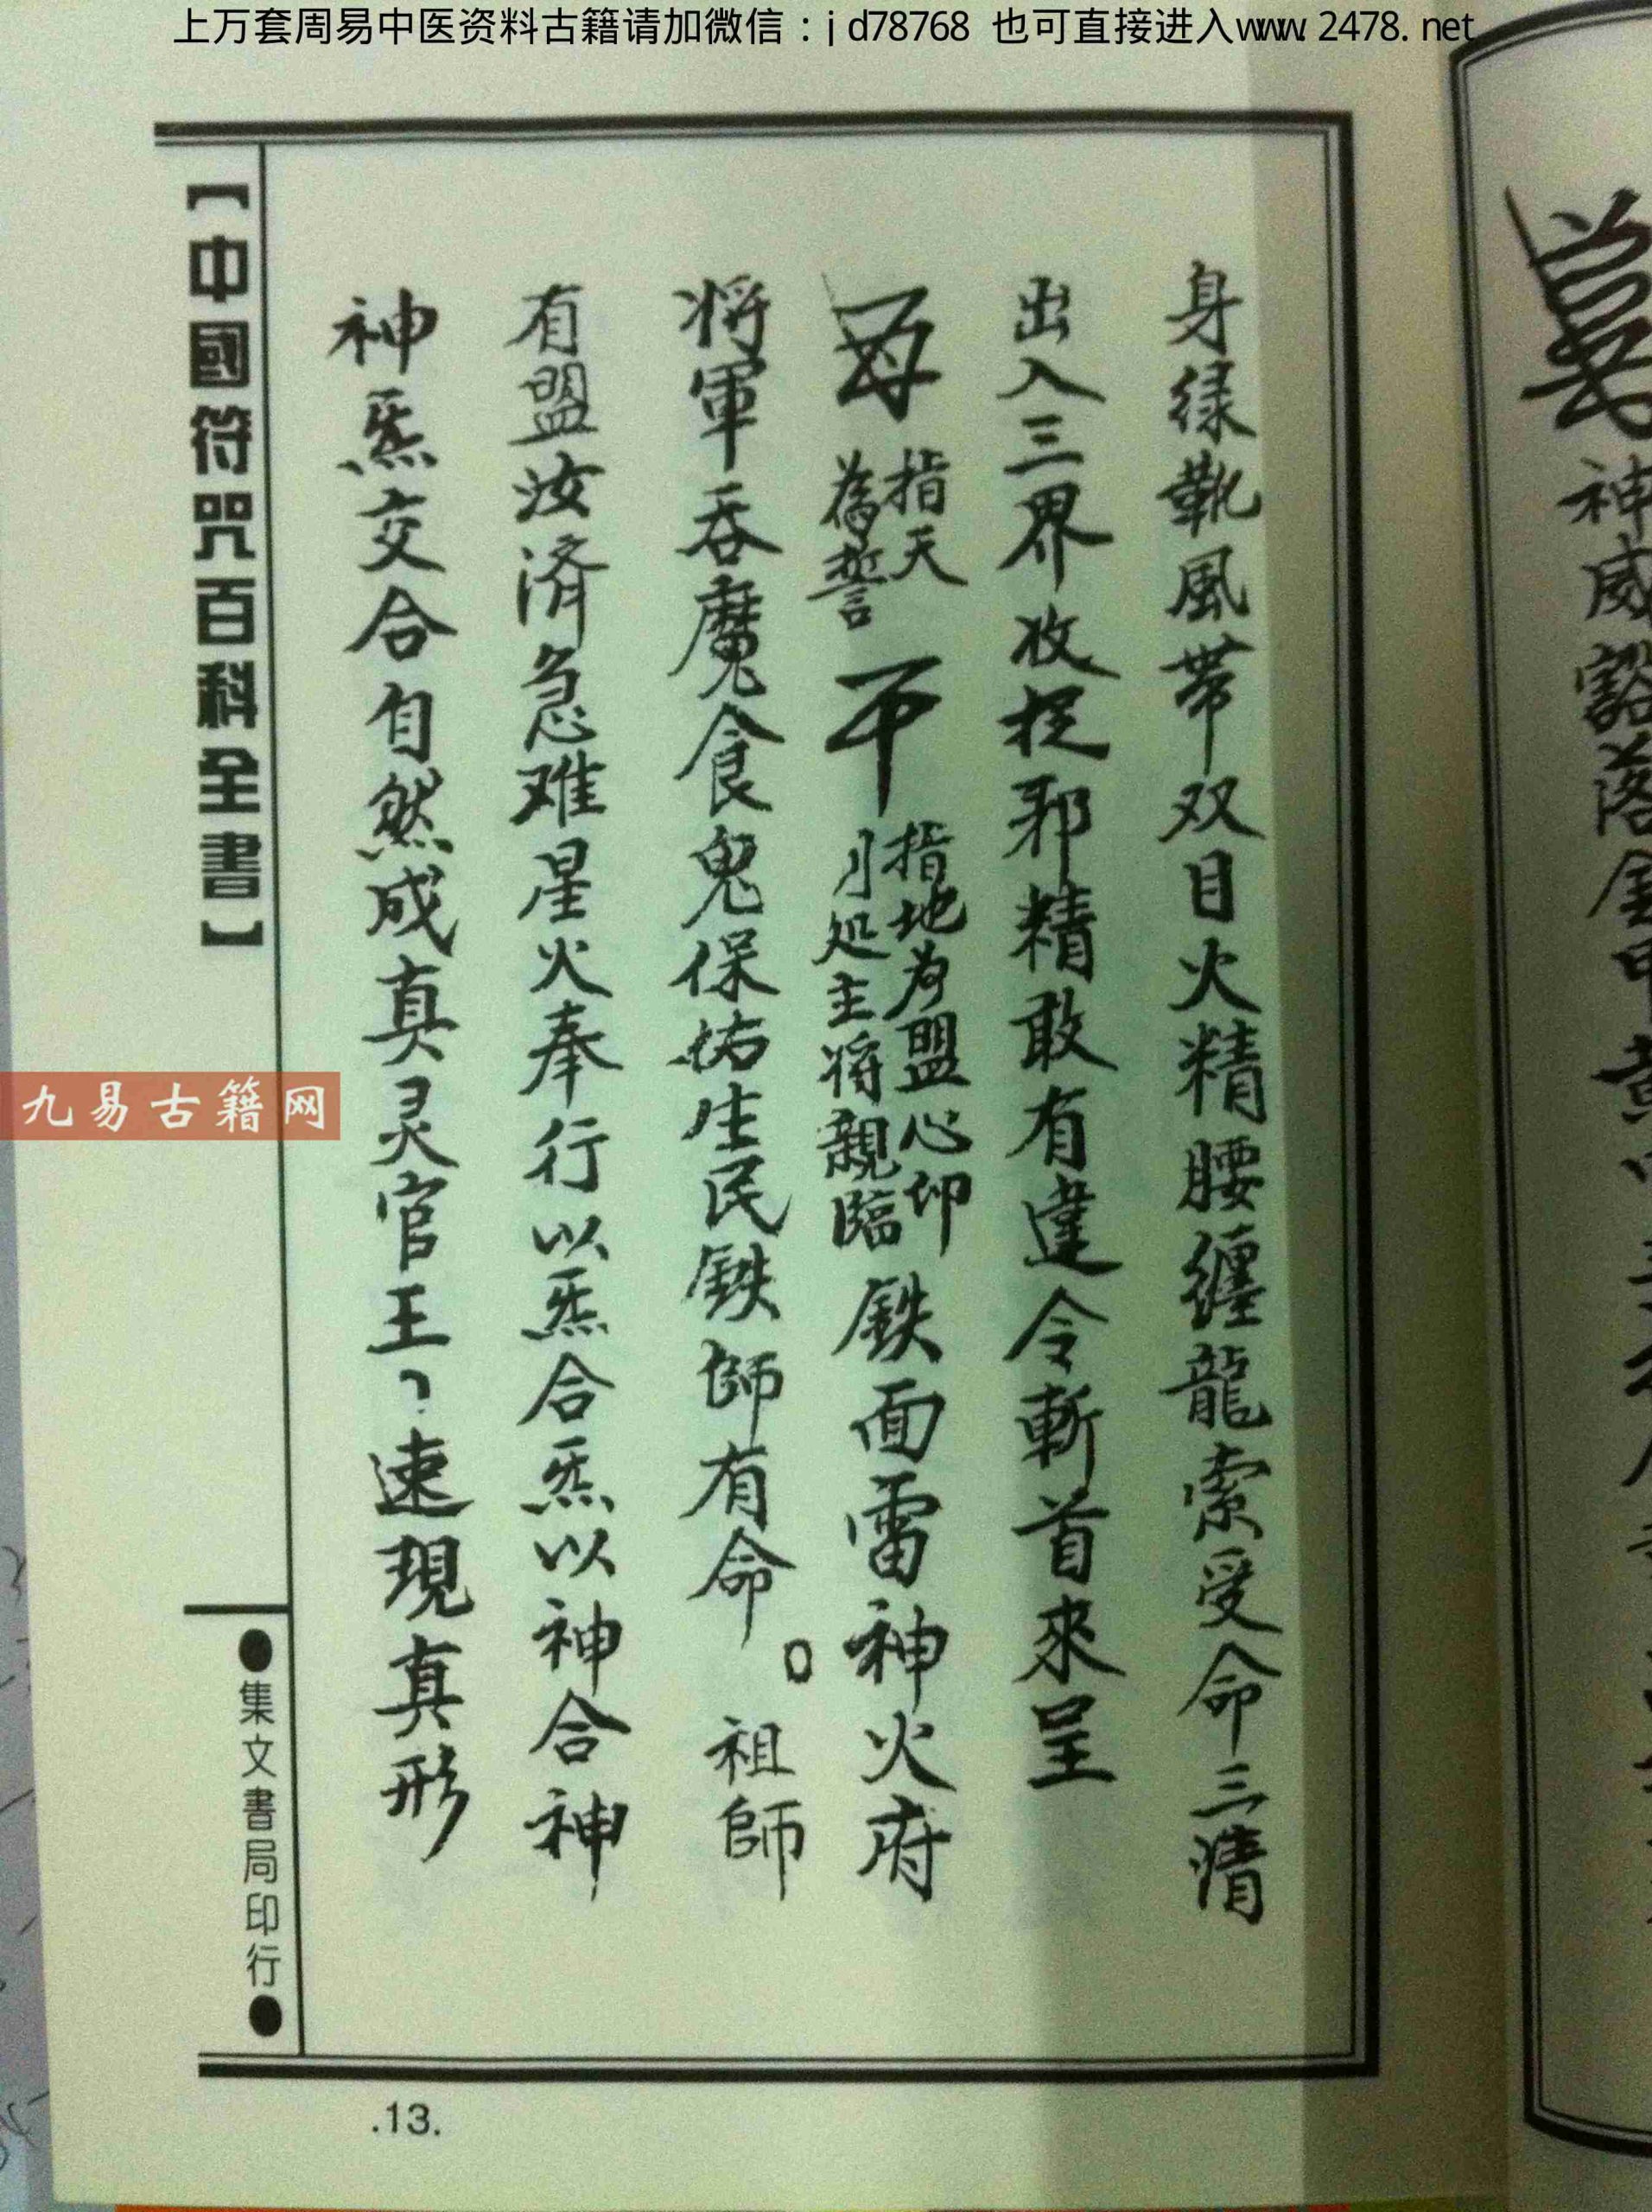 上万套周易中医资料古籍请加微信：jd78768 也可直接进入www.2478.net
神威豁落金甲
身绿靴風带双目火精腰缠龍索受命三清
出入三界收捉邪精敢有違令斬首來呈
指天
為誓
指地为盟心印
主将親臨
鉄面雷神火府
将軍吞魔食鬼保祐生民鉄師有命。祖師
有盟汝済急难星火奉行以炁合炁以神合神
神炁交合自然成真灵官王速現真形
【中國符咒百科全書】
●集文書局印行●
九易古籍网
.13.